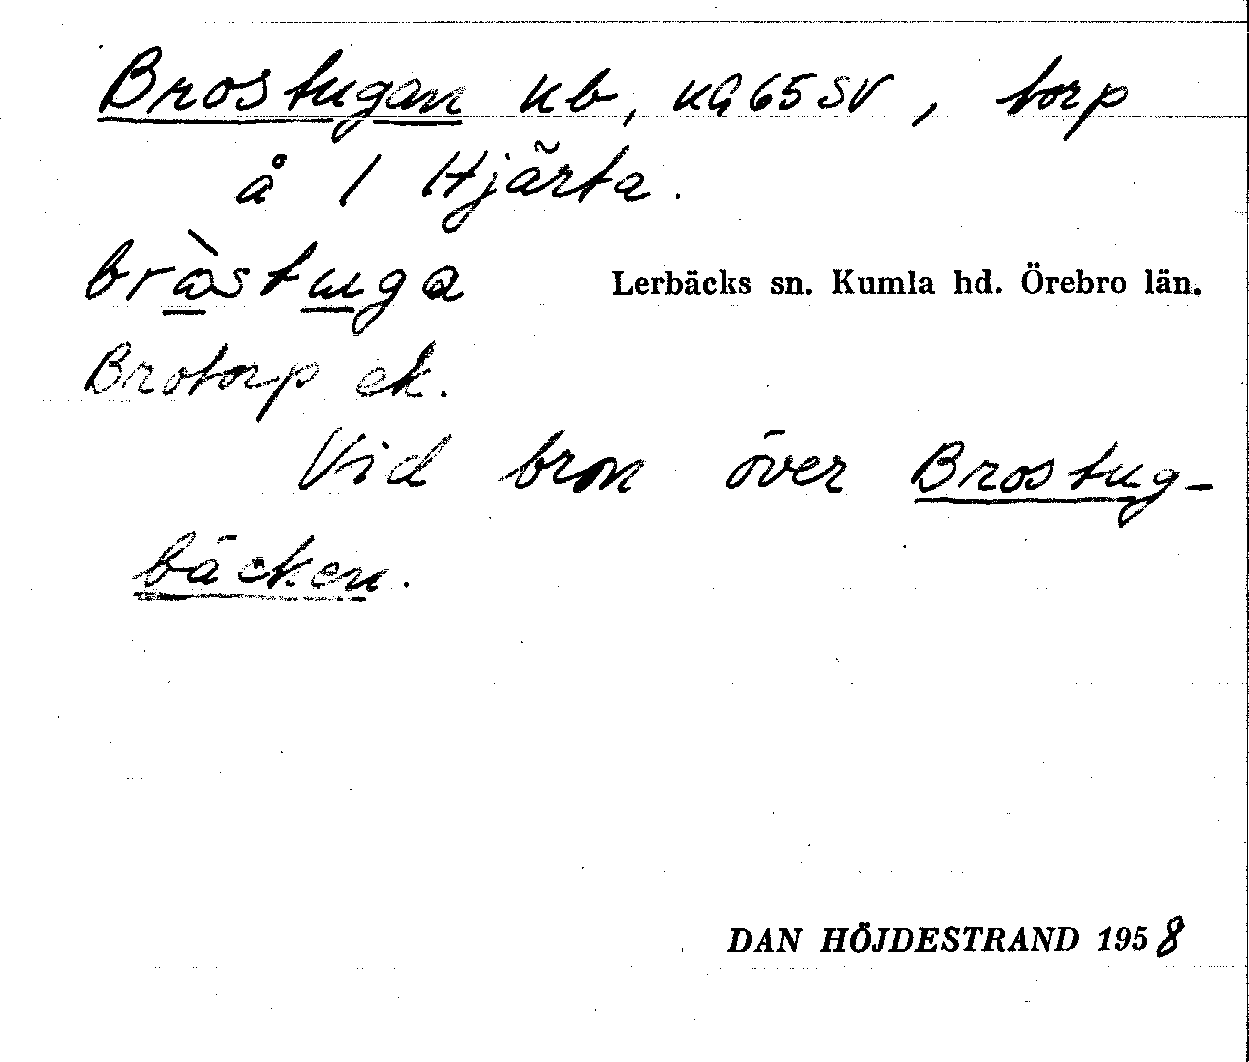 Brostugan kb, kG 65 SV, torp
å 1 Hjärta.
bròstuga
Lerbäcks sn. Kumla hd. Örebro län.
Brotorp ek.
Vid bron över Brostug-
bäcken.
DAN HÖJDESTRAND 1958